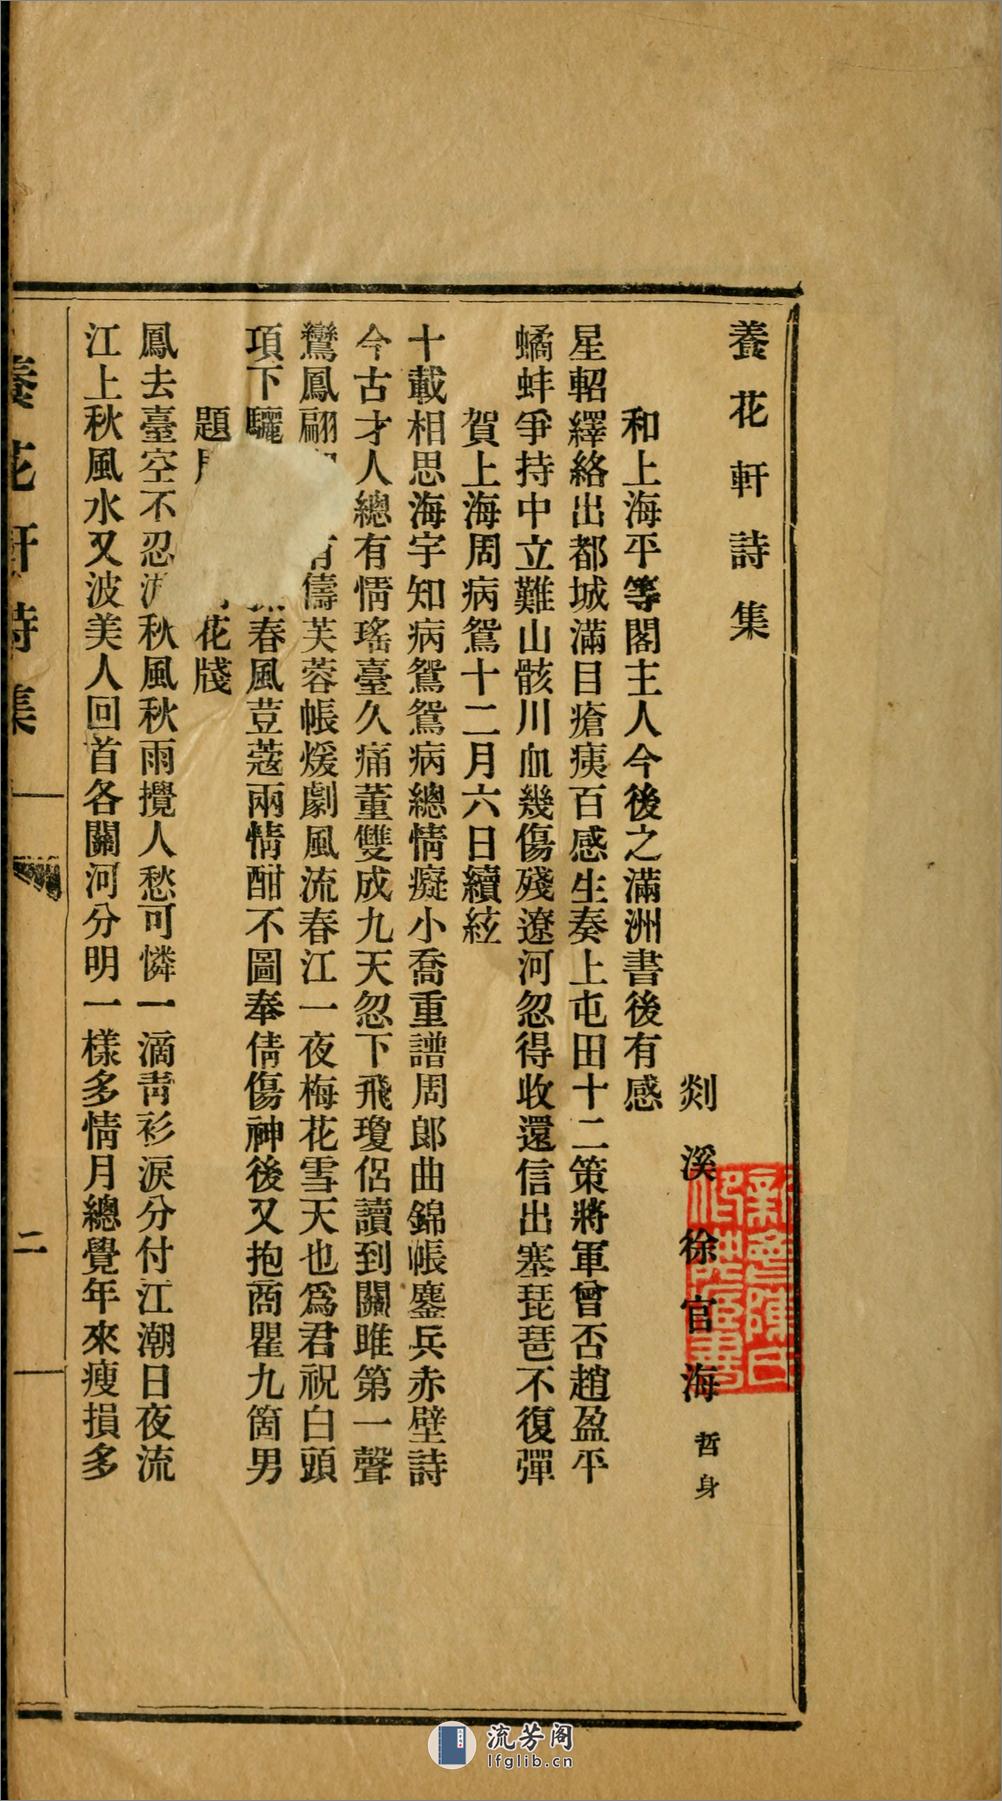 養花軒詩集
剡溪徐官海哲身
和上海平等閣主人今後之滿洲書後有感
星軺繹絡出都城滿目瘡痍百感生奏上屯田十二策將軍曾否趙盈平
蟠蚌爭持中立難山骸川血幾傷殘遼河忽得收還信出塞琵琶不復彈
賀上海周病鴛十二月六日續絃
十載相思海宇知病鴛鴦病總情癡小喬重譜周郎曲錦帳鏖兵赤壁詩
今古才人總有情瑤臺久痛董雙成九天忽下飛瓊侶讀到關雎第一聲
鸞鳳翩 有儔芙蓉帳煖劇風流春江一夜梅花雪天也爲君祝白頭
項下驪 春風荳蔻兩情酣不圖奉倩傷神後又抱商瞿九箇男
題 花牋
鳳去臺空不忍 秋風秋雨攪人愁可憐一滴靑衫淚分付江潮日夜流
江上秋風水又波美人回首各關河分明一樣多情月總覺年來瘦損多
養花軒詩集
二
流芳阁
lfglib.cn